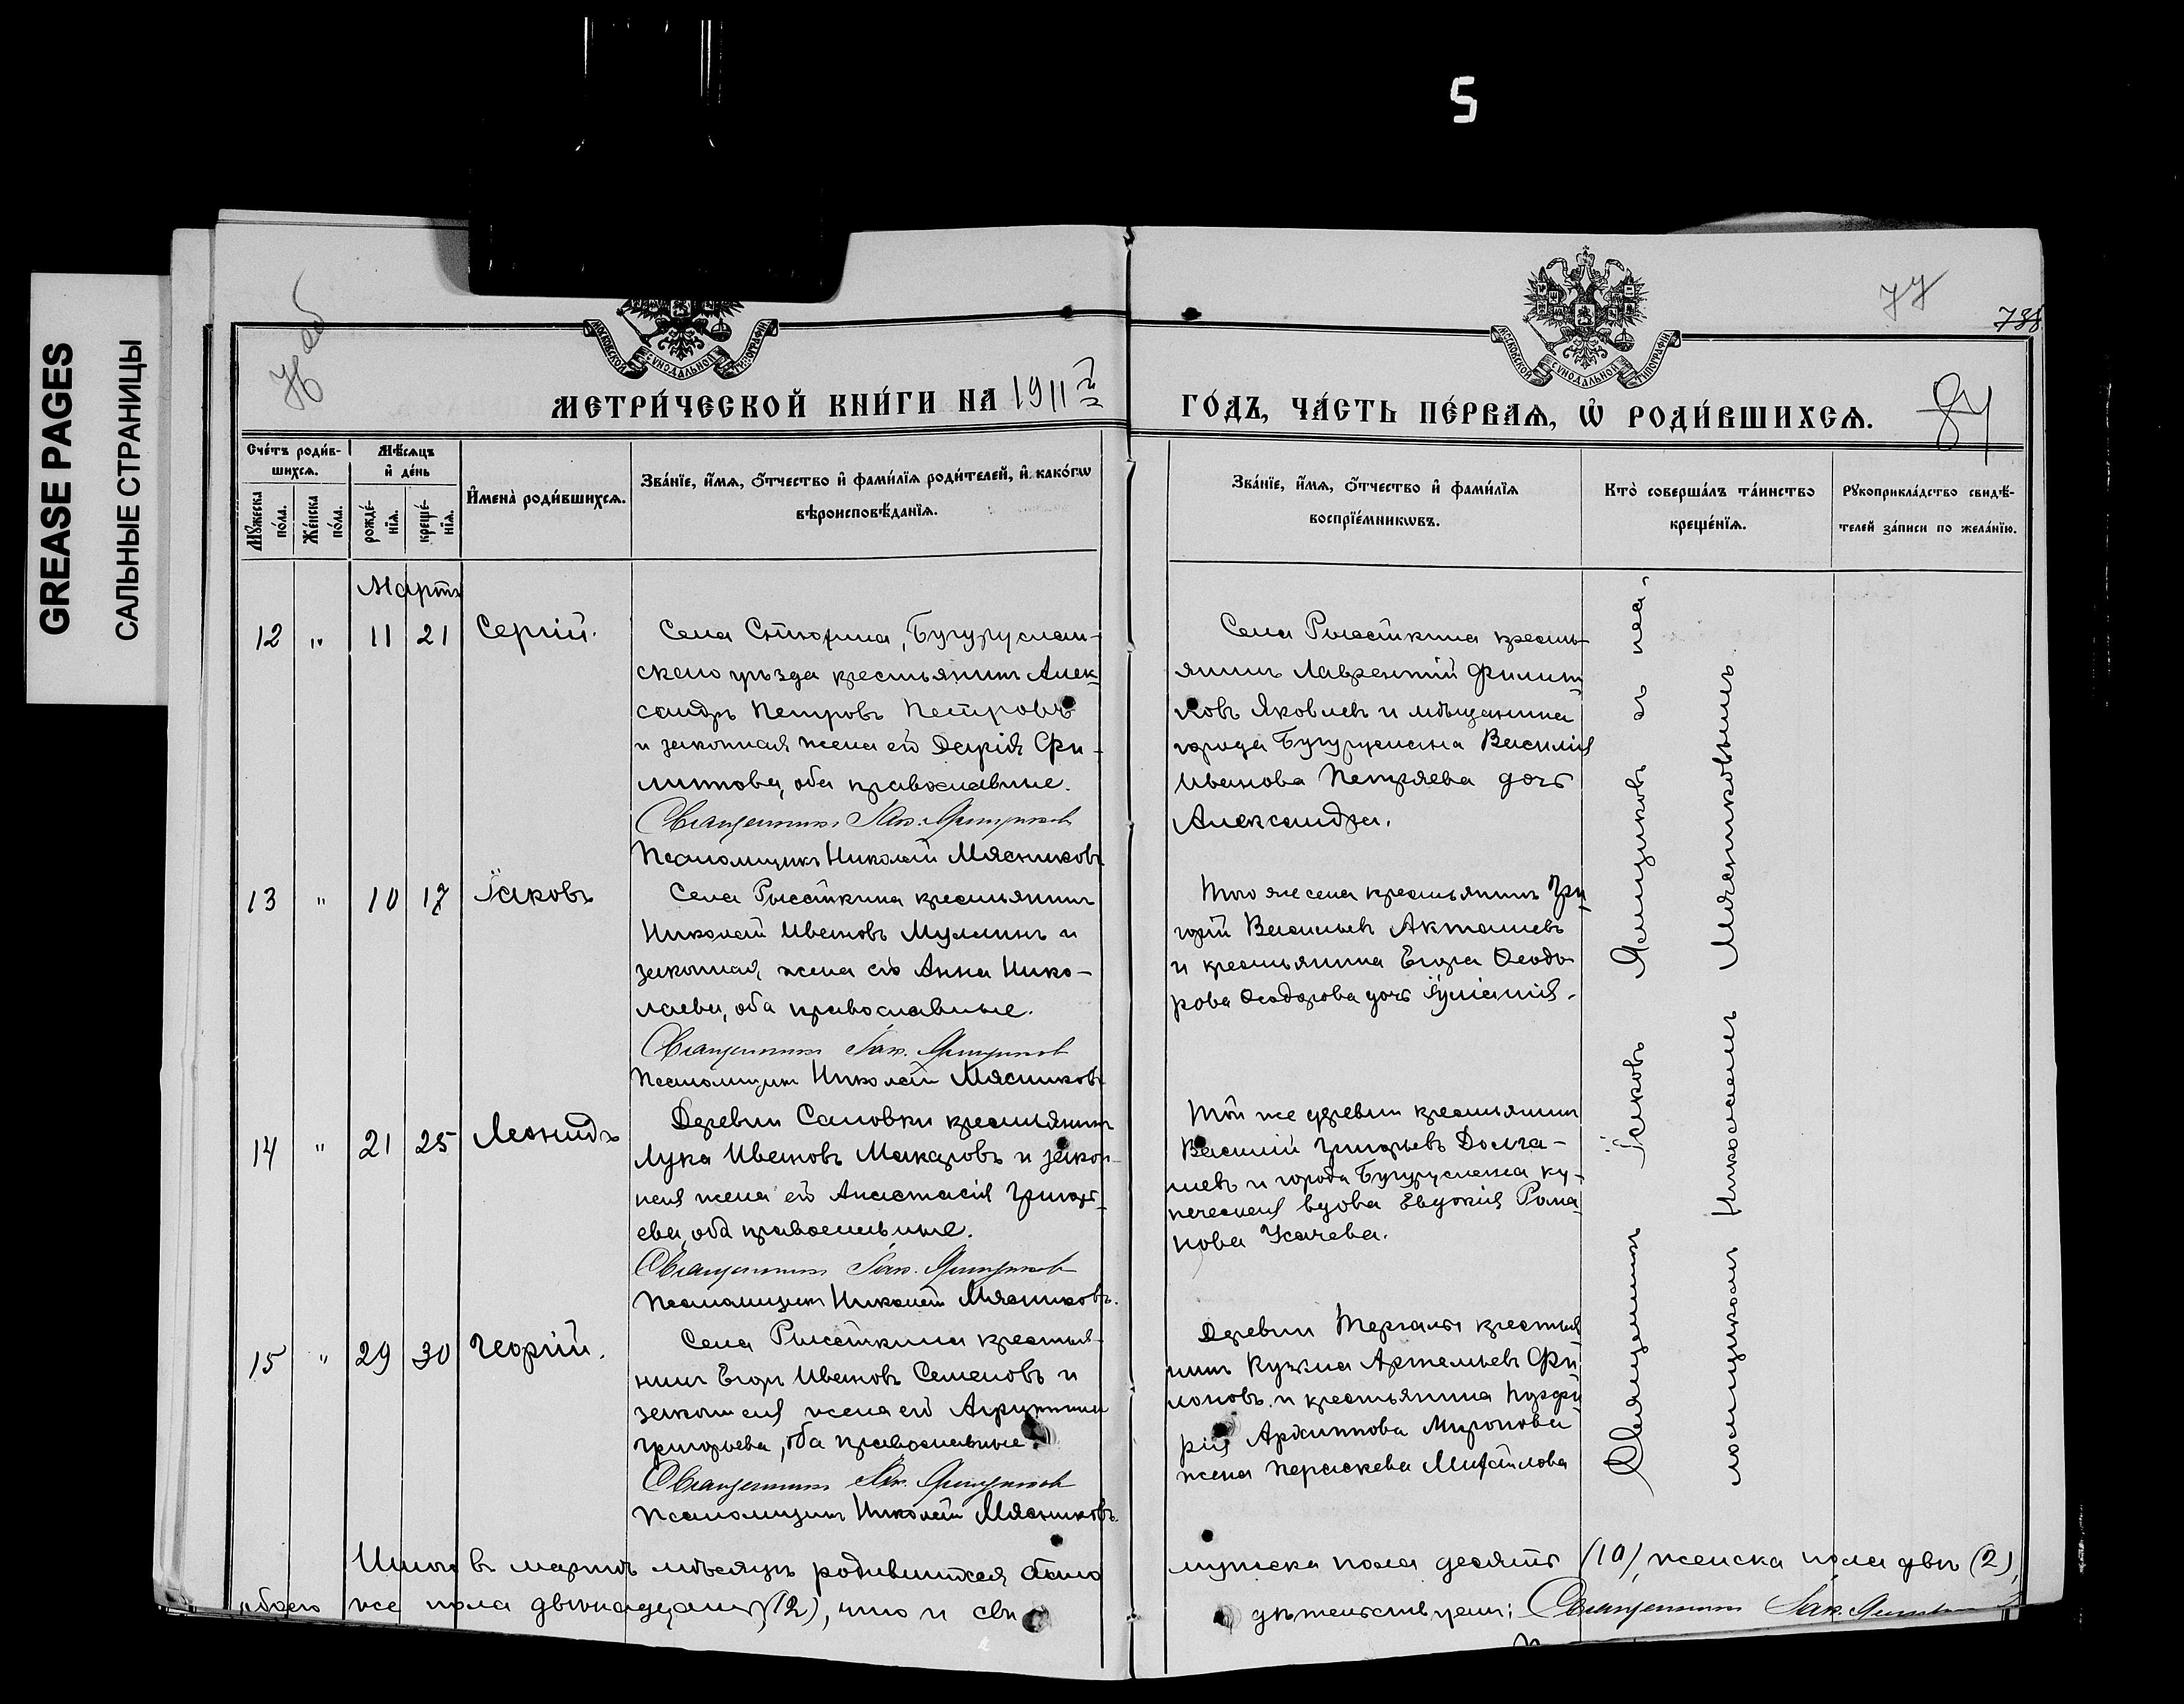 5
GREASE PAGES
САЛЬНЫЕ СТРАНИЦЫ
77
84
МЕТРИ́ЧЕСКОЙ КНИ́ГИ НА 1911й
ГО́ДЪ, ЧА́СТЬ ПЕ́РВАѦ, Ѡ҆ РОДИ́ВШИХСѦ.
Сче́тъ роди́в-
шихсѧ.
Мѣ́сѧцъ
и҆ де́нь
Мꙋ́жеска по́ла.
Же́нска по́ла.
рожде́-нїѧ.
креще́-нїѧ.
И҆мена̀ роди́вшихсѧ.
Зва́нїе, и҆́мѧ, ѻ҆́тчество и҆ фами́лїѧ роди́телей, и҆ како́гѡ
вѣроисповѣ́данїѧ.
Зва́нїе, и҆́мѧ, ѻ҆́тчество и҆ фами́лїѧ
воспрїе́мникѡвъ.
Кто̀ соверша́лъ та́инство
креще́нїѧ.
Рꙋкоприкла́дство свидѣ́-
телей за́писи по жела́нїю.
Мартъ
12 " 11 21 Сергій.
Села Бугуруслан-
скаго уѣзда крестьянинъ Алек-
сандръ Петровъ Петровъ
и законная жена его Дарія Фи-
липпова, оба православные.
Священникъ Іак. Ямщиковъ
Псаломщикъ Николай Мясниковъ
Села Рысайкина кресть-
янинъ Лаврентій Филип-
повъ Яковлевъ и мѣщанина
города Бугуруслана Василія
Иванова Петряева дочь
Александра.
13 " 10 17 Іаковъ
Села Рысайкина крестьянинъ
Николай Ивановъ Муллинъ и
законная жена его Анна Нико-
лаева, оба православные.
Священникъ Іак. Ямщиковъ
Псаломщикъ Николай Мясниковъ
Того же села крестьянинъ Гри-
горій Васильевъ Акташевъ
и крестьянина Егора Ѳеодо-
рова Ѳеодорова дочь Іуліанія.
14 " 21 25 Леонидъ
Деревни Саловки крестьянинъ
Лука Ивановъ Макаровъ и закон-
ная жена его Анастасія Григорь-
ева, оба православные.
Священникъ Іак. Ямщиковъ
Псаломщикъ Николай Мясниковъ.
Той же деревни крестьянинъ
Василій Григорьевъ Долга-
шевъ и города Бугуруслана ку-
печеская вдова Евдокія Рома-
нова Усачева.
15 " 29 30 Георгій.
Села Рысайкина крестья-
нинъ Егоръ Ивановъ Семеновъ и
законная жена его Агриппина
Григорьева, оба православные.
Священникъ Іак. Ямщиковъ
Псаломщикъ Николай Мясниковъ.
Деревни Тергалы крестья-
нинъ Кузьма Артемьевъ Фи-
лоновъ и крестьянина Порфи-
рія Архиппова Миронова
жена Параскева Михайлова
Священникъ Іаковъ Ямщиковъ съ пса-
ломщикомъ Николаемъ Мясниковымъ.
Итого въ мартѣ мѣсяцѣ родившихся было
мужеска пола десять (10), женска пола двѣ (2),
обоего же пола двѣнадцать (12), что и сви-
дѣтельствуемъ: Священникъ Іак. Ямщиковъ